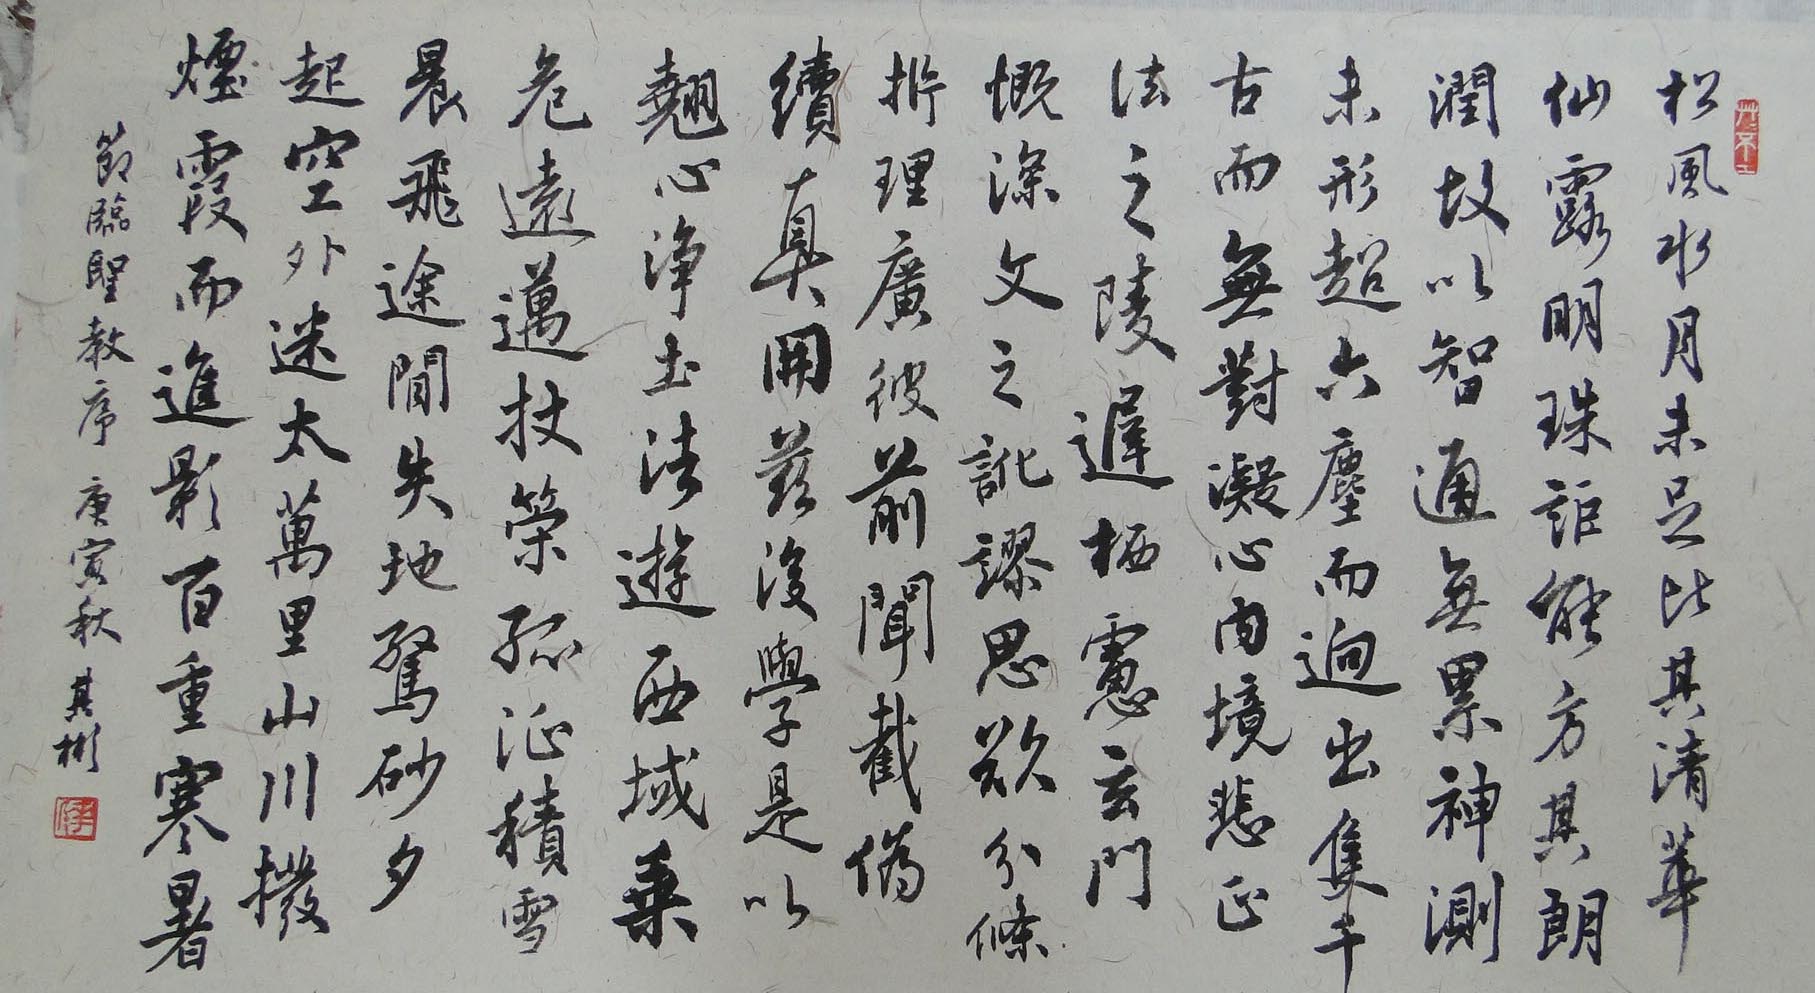 松風水月未足比其清華
仙露明珠詎能方其朗
潤故以智通無累神測
未形超六塵而迥出隻千
古而無對凝心內境悲正
法之陵遲栖慮玄門
慨深文之訛謬思欲分條
析理廣彼前聞截偽
續真開茲後學是以
翹心淨土法遊西域乗
危遠邁杖策孤征積雪
晨飛途間失地驚砂夕
起空外迷太萬里山川撥
煙霞而進影百重寒暑
節臨聖教序 庚寅秋 其彬